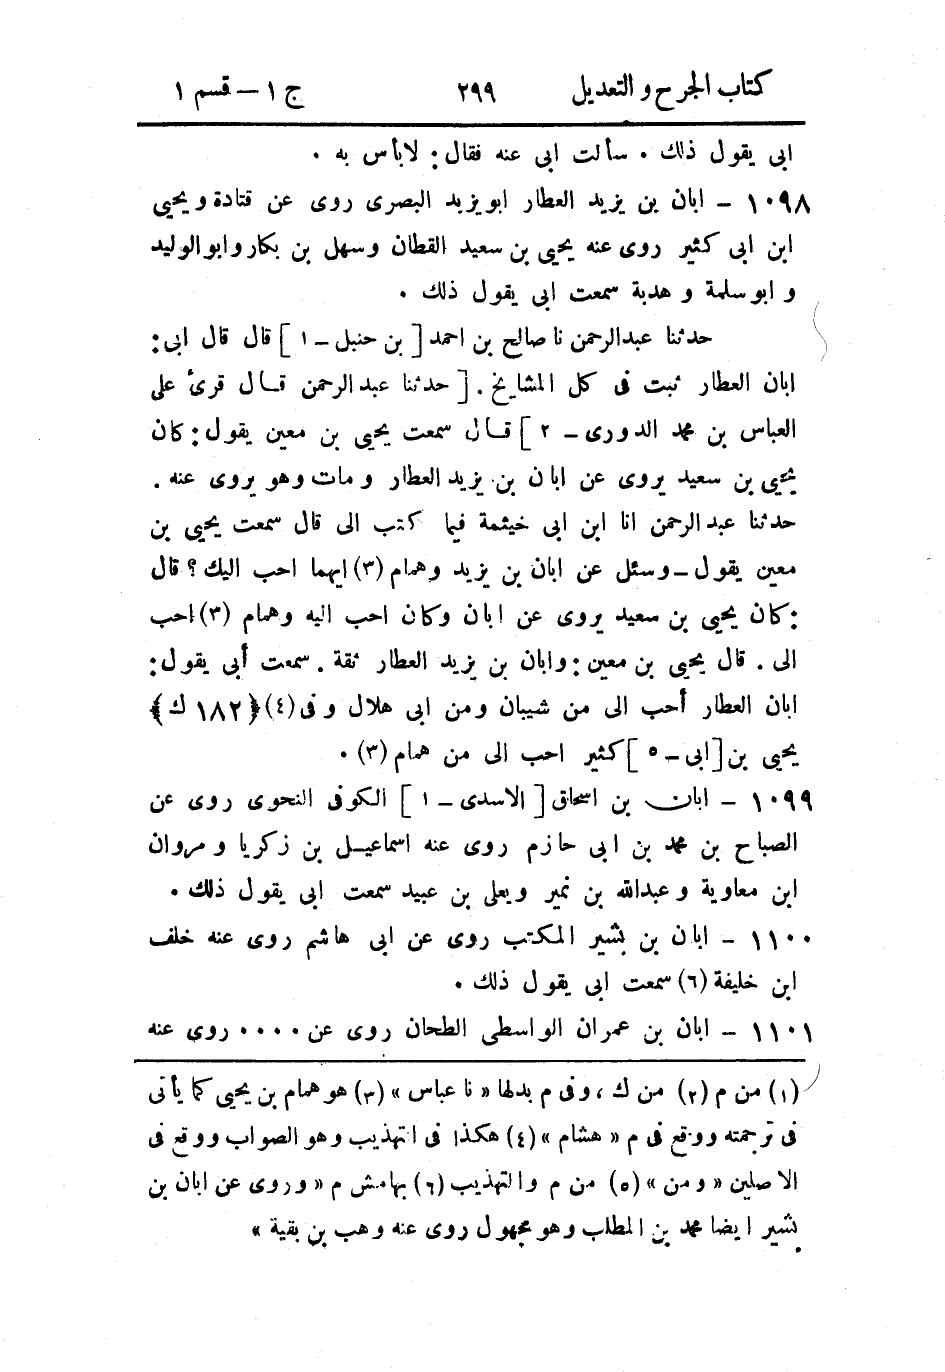 كتاب الجرح و التعديل ٢٩٩ ج ١ – قسم ١
ابى يقول ذلك . سألت ابى عنه فقال : لا بأس به .
١٠٩٨ – ابان بن يزيد العطار ابو يزيد البصرى روى عن قتادة و يحيى
ابن ابى كثير روى عنه يحيى بن سعيد القطان وسهل بن بكار وابو الوليد
و ابو سلمة و هدبة سمعت ابى يقول ذلك .
حدثنا عبدالرحمن نا صالح بن احمد [ بن حنبل – ١ ] قال قال ابى :
ابان العطار ثبت فى كل المشايخ . [ حدثنا عبد الرحمن قال قرئ على
العباس بن محمد الدورى – ٢ ] قال سمعت يحيى بن معين يقول : كان
يحيى بن سعيد يروى عن ابان بن يزيد العطار و مات وهو يروى عنه .
حدثنا عبد الرحمن انا ابن ابى خيثمة فيما كتب الى قال سمعت يحيى بن
معين يقول – وسئل عن ابان بن يزيد وهمام (٣) ايهما احب اليك ؟ قال
: كان يحيى بن سعيد يروى عن ابان وكان احب اليه وهمام (٣) احب
الى . قال يحيى بن معين : وابان بن يزيد العطار ثقة . سمعت أبى يقول :
ابان العطار أحب الى من شيبان ومن ابى هلال و فى (٤) ﴿ ١٨٢ ك ﴾
يحيى بن [ ابى – ٥ ] كثير احب الى من همام (٣) .
١٠٩٩ – ابان بن اسحاق [ الاسدى – ١ ] الكوفى النحوى روى عن
الصباح بن محمد بن ابى حازم روى عنه اسماعيل بن زكريا و مروان
ابن معاوية و عبدالله بن نمير ويعلى بن عبيد سمعت ابى يقول ذلك .
١١٠٠ – ابان بن بشير المكتب روى عن ابى هاشم روى عنه خلف
ابن خليفة (٦) سمعت ابى يقول ذلك .
١١٠١ – ابان بن عمران الواسطى الطحان روى عن .... روى عنه
(١) من م (٢) من ك ، وفى م بدلها « نا عباس » (٣) هو همام بن يحيى كما يأتى
فى ترجمته ووقع فى م « هشام » (٤) هكذا فى التهذيب وهو الصواب ووقع فى
الاصلين « ومن » (٥) من م والتهذيب (٦) بهامش م « وروى عن ابان بن
بشير ايضا محمد بن المطلب وهو مجهول روى عنه وهب بن بقية »